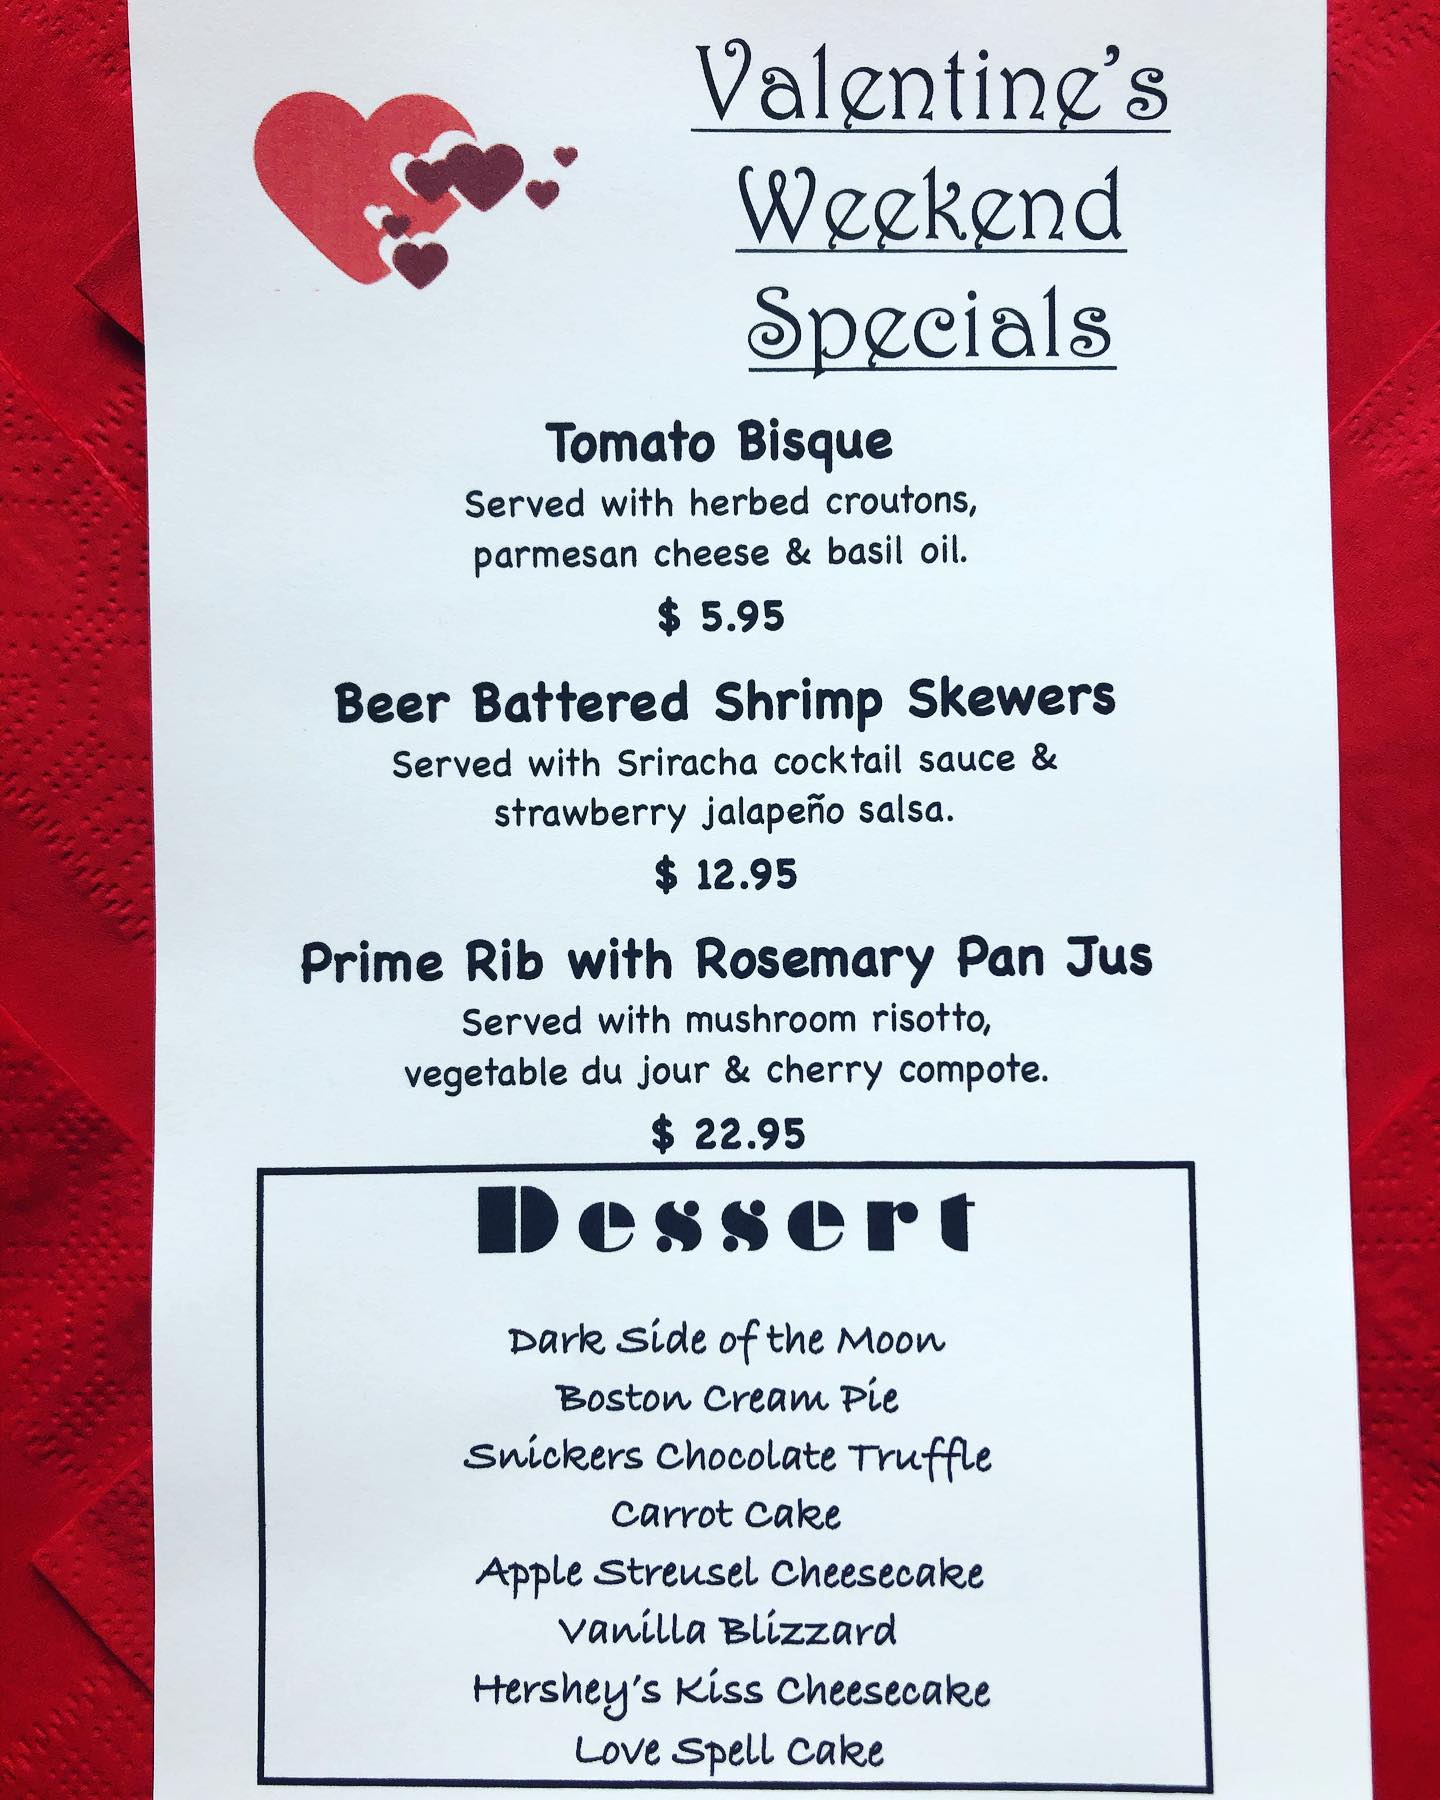 Valentine's
Weekend
Specials
Tomato Bisque
Served with herbed croutons,
parmesan cheese & basil oil.
$ 5.95
Beer Battered Shrimp Skewers
Served with Sriracha cocktail sauce &
strawberry jalapeño salsa.
$ 12.95
Prime Rib with Rosemary Pan Jus
Served with mushroom risotto,
vegetable du jour & cherry compote.
$ 22.95
Dessert
Dark Side of the Moon
Boston Cream Pie
Snickers Chocolate Truffle
Carrot Cake
Apple Streusel Cheesecake
Vanilla Blizzard
Hershey's Kiss Cheesecake
Love Spell Cake